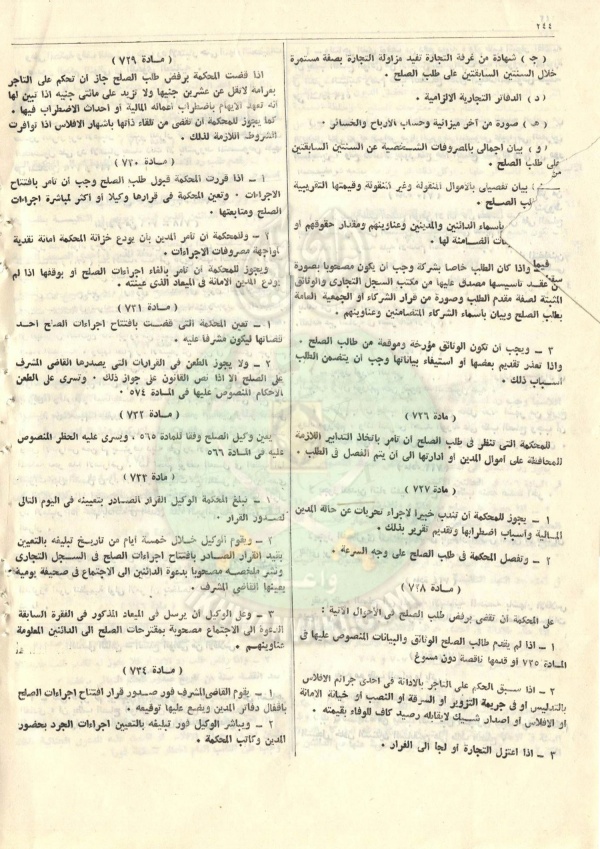 ٢٤٤
( ج ) شهادة من غرفة التجارة تفيد مزاولة التجارة بصفة مستمرة
خلال السنتين السابقتين على طلب الصلح .
( د ) الدفاتر التجارية الالزامية .
( هـ ) صورة من آخر ميزانية وحساب الارباح والخسائر .
( و ) بيان اجمالى بالمصروفات الشخصية عن السنتين السابقتين
على طلب الصلح .
بيان تفصيلى بالاموال المنقولة وغير المنقولة وقيمتها التقريبية
طلب الصلح .
بأسماء الدائنين والمدينين وعناوينهم ومقدار حقوقهم او
الضامنة لها .
واذا كان الطلب خاصا بشركة وجب أن يكون مصحوبا بصورة
من عقد تأسيسها مصدق عليها من مكتب السجل التجارى والوثائق
المثبتة لصفة مقدم الطلب وصورة من قرار الشركاء أو الجمعية العامة
بطلب الصلح وبيان بأسماء الشركاء المتضامنين وعناوينهم .
٣ – ويجب أن تكون الوثائق مؤرخة وموقعة من طالب الصلح .
واذا تعذر تقديم بعضها أو استيفاء بياناتها وجب أن يتضمن الطلب
أسباب ذلك .
( مادة ٧٢٦ )
للمحكمة التى تنظر فى طلب الصلح أن تأمر باتخاذ التدابير اللازمة
للمحافظة على اموال المدين أو ادارتها الى ان يتم الفصل فى الطلب .
( مادة ٧٢٧ )
١ – يجوز للمحكمة أن تندب خبيرا لاجراء تحريات عن حالة المدين
المالية وأسباب اضطرابها وتقديم تقرير بذلك .
٢ – وتفصل المحكمة فى طلب الصلح على وجه السرعة .
( مادة ٧٢٨ )
على المحكمة أن تقضى برفض طلب الصلح فى الأحوال الآتية :
١ – اذا لم يقدم طالب الصلح الوثائق والبيانات المنصوص عليها فى
المادة ٧٢٥ أو قدمها ناقصة دون مسوغ
٢ – اذا سبق الحكم على التاجر بالادانة فى احدى جرائم الافلاس
بالتدليس أو فى جريمة التزوير أو السرقة أو النصب أو خيانة الامانة
أو الافلاس أو اصدار شيك لايقابله رصيد كاف للوفاء بقيمته .
٣ – اذا اعتزل التجارة أو لجأ الى الفرار .
( مادة ٧٢٩ )
اذا قضت المحكمة برفض طلب الصلح جاز ان تحكم على التاجر
بغرامة لاتقل عن عشرين جنيها ولا تزيد على مائتى جنيه اذا تبين لها
انه تعمد الايهام باضطراب أعماله المالية أو احداث الاضطراب فيها .
كما يجوز للمحكمة أن تقضى من تلقاء ذاتها باشهار الافلاس اذا توافرت
الشروط اللازمة لذلك .
( مادة ٧٣٠ )
١ – اذا قررت المحكمة قبول طلب الصلح وجب أن تأمر بافتتاح
الاجراءات . وتعين المحكمة فى قرارها وكيلا أو اكثر لمباشرة اجراءات
الصلح ومتابعتها .
٢ – وللمحكمة أن تأمر المدين بأن يودع خزانة المحكمة أمانة نقدية
لمواجهة مصروفات الاجراءات .
ويجوز للمحكمة أن تأمر بالغاء اجراءات الصلح أو بوقفها اذا لم
يودع المدين الأمانة فى الميعاد الذى عينته .
( مادة ٧٣١ )
١ – تعين المحكمة التى قضت بافتتاح اجراءات الصلح أحد
قضاتها ليكون مشرفا عليه .
٢ – ولا يجوز الطعن فى القرارات التى يصدرها القاضى المشرف
على الصلح الا اذا نص القانون على جواز ذلك . وتسرى على الطعن
الأحكام المنصوص عليها فى المادة ٥٧٤ .
( مادة ٧٣٢ )
يعين وكيل الصلح وفقا للمادة ٥٦٥ ، ويسرى عليه الحظر المنصوص
عليه فى المادة ٥٦٦
( مادة ٧٣٣ )
١ – تبلغ المحكمة الوكيل القرار الصادر بتعيينه فى اليوم التالى
لصدور القرار .
٢ – ويقوم الوكيل خلال خمسة أيام من تاريخ تبليغه بالتعيين
بقيد القرار الصادر بافتتاح اجراءات الصلح فى السجل التجارى
ونشر ملخصه مصحوبا بدعوة الدائنين الى الاجتماع فى صحيفة يومية
يعينها القاضى المشرف .
٣ – وعلى الوكيل أن يرسل فى الميعاد المذكور فى الفقرة السابقة
الدعوة الى الاجتماع مصحوبة بمقترحات الصلح الى الدائنين المعلومة
عناوينهم .
( مادة ٧٣٤ )
١ – يقوم القاضى المشرف فور صدور قرار افتتاح اجراءات الصلح
باقفال دفاتر المدين ويضع عليها توقيعه .
٢ – ويباشر الوكيل فور تبليغه بالتعيين اجراءات الجرد بحضور
المدين وكاتب المحكمة .